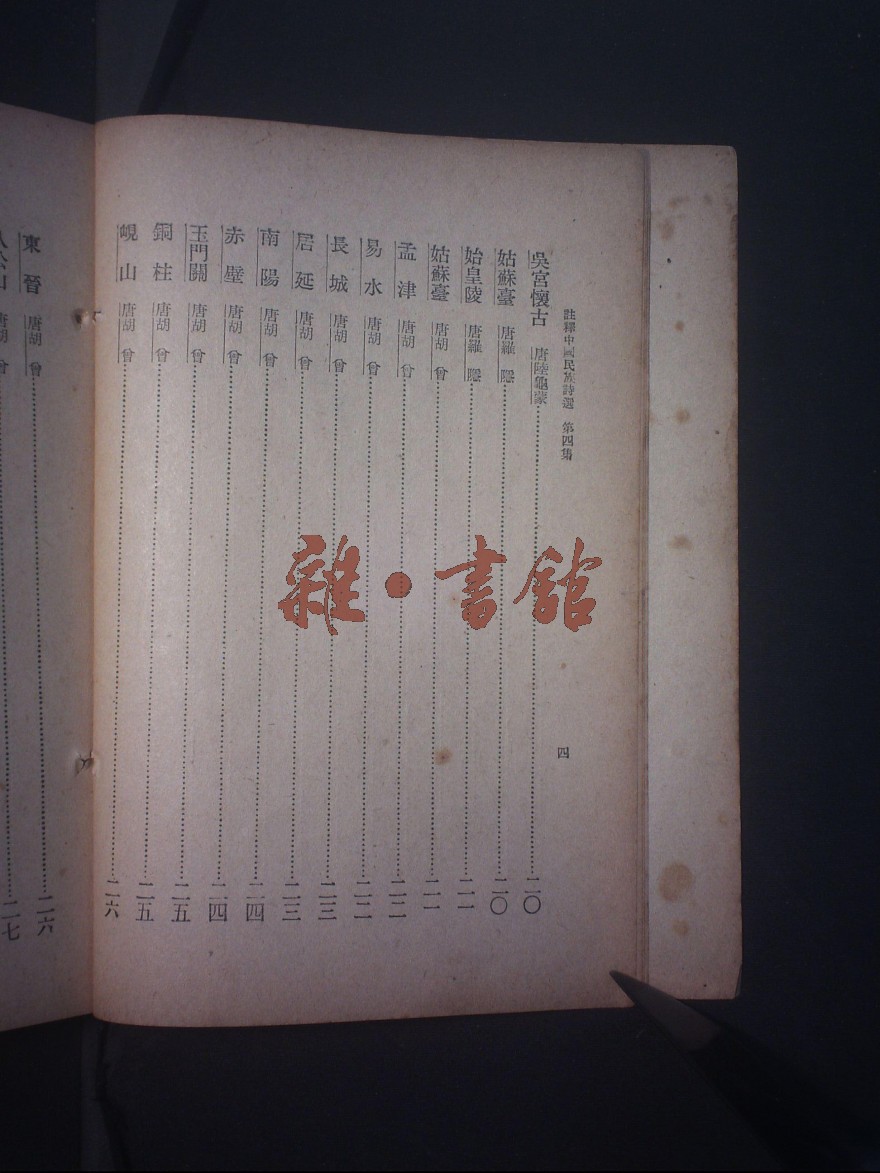 註釋中國民族詩選 第四集
四
吳宮懷古 唐陸龜蒙 二〇
姑蘇臺 唐羅隱 二〇
始皇陵 唐羅隱 二一
姑蘇臺 唐胡曾 二一
孟津 唐胡曾 二二
易水 唐胡曾 二二
長城 唐胡曾 二三
居延 唐胡曾 二三
南陽 唐胡曾 二四
赤壁 唐胡曾 二四
玉門關 唐胡曾 二五
銅柱 唐胡曾 二五
峴山 唐胡曾 二六
東晉 唐胡曾 二六
八公山 唐胡曾 二七
雜·書館